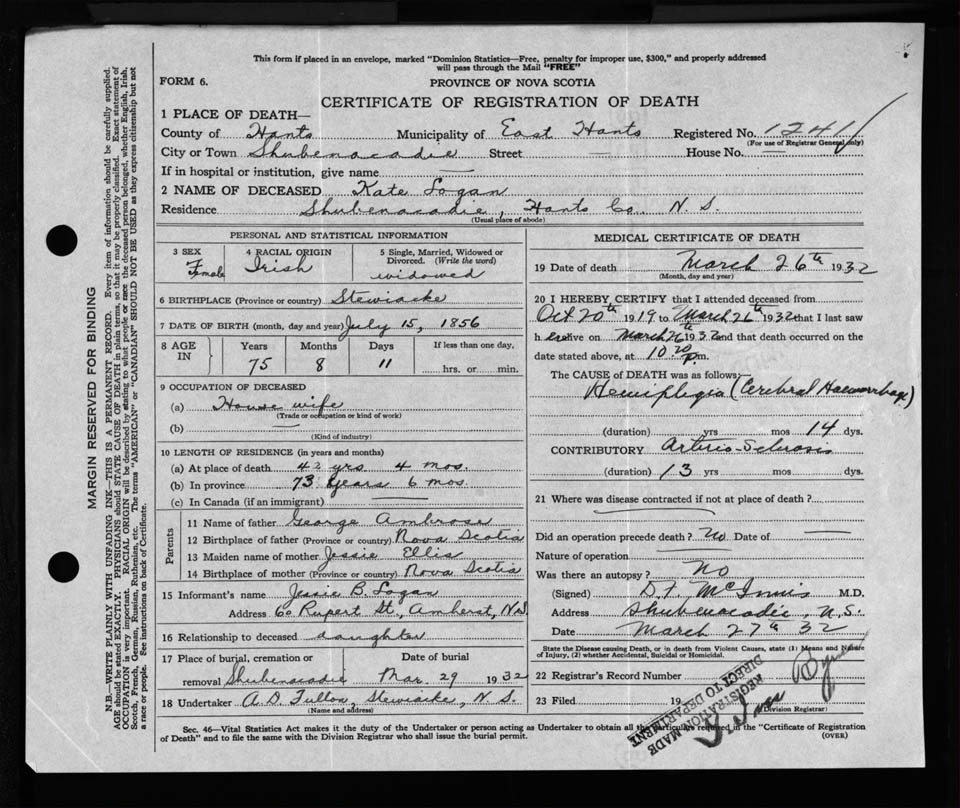 This form if placed in an envelope, marked "Dominion Statistics—Free, penalty for improper use, $300," and properly addressed
will pass through the Mail "FREE"
FORM 6.
PROVINCE OF NOVA SCOTIA
CERTIFICATE OF REGISTRATION OF DEATH
1 PLACE OF DEATH—
County of Hants Municipality of East Hants Registered No. 1241
(For use of Registrar General only)
City or Town Shubenacadie Street — House No. —
If in hospital or institution, give name —
2 NAME OF DECEASED Kate Logan
Residence Shubenacadie, Hants Co. N. S.
(Usual place of abode)
PERSONAL AND STATISTICAL INFORMATION
3 SEX 4 RACIAL ORIGIN 5 Single, Married, Widowed or
Divorced. (Write the word)
Female Irish widowed
6 BIRTHPLACE (Province or country) Stewiacke
7 DATE OF BIRTH (month, day and year) July 15, 1856
8 AGE IN Years Months Days If less than one day,
75 8 11 hrs. or min.
9 OCCUPATION OF DECEASED
(a) House wife
(Trade or occupation or kind of work)
(b) —
(Kind of industry)
10 LENGTH OF RESIDENCE (in years and months)
(a) At place of death 42 yrs 4 mos.
(b) In province 73 years 6 mos.
(c) In Canada (if an immigrant)
Parents
11 Name of father George Ambrose
12 Birthplace of father (Province or country) Nova Scotia
13 Maiden name of mother Jessie Ellis
14 Birthplace of mother (Province or country) Nova Scotia
15 Informant's name Jessie B. Logan
Address 60 Rupert St, Amherst, N.S.
16 Relationship to deceased daughter
17 Place of burial, cremation or Date of burial
removal Shubenacadie Mar. 29 1932
18 Undertaker A. D. Fulton, Stewiacke, N. S.
(Name and address)
MEDICAL CERTIFICATE OF DEATH
19 Date of death March 26th 1932
(Month, day and year)
20 I HEREBY CERTIFY that I attended deceased from
Oct 20th 1919 to March 26th 1932 that I last saw
h er alive on March 26th 1932 and that death occurred on the
date stated above, at 10 20 p.m.
The CAUSE OF DEATH was as follows:
Hemiplegia (Cerebral Haemorrhage)
(duration) yrs mos 14 dys.
CONTRIBUTORY Arterio-Sclerosis
(duration) 13 yrs mos dys.
21 Where was disease contracted if not at place of death?
Did an operation precede death? No Date of —
Nature of operation
Was there an autopsy? No
(Signed) D. F. McInnis M.D.
Address Shubenacadie, N.S.
Date March 27th 32
State the Disease causing Death, or in death from Violent Causes, state (1) Means and Nature
of Injury, (2) whether Accidental, Suicidal or Homicidal.
22 Registrar's Record Number
23 Filed 19
(Division Registrar)
REGISTRATION MADE
DIRECT TO DEPARTMENT
Sec. 46—Vital Statistics Act makes it the duty of the Undertaker or person acting as Undertaker to obtain all the particulars required in the "Certificate of Registration
of Death" and to file the same with the Division Registrar who shall issue the burial permit.
(OVER)
MARGIN RESERVED FOR BINDING
N.B.—WRITE PLAINLY WITH UNFADING INK—THIS IS A PERMANENT RECORD. Every item of information should be carefully supplied.
AGE should be stated EXACTLY. PHYSICIANS should STATE CAUSE OF DEATH in plain terms, so that it may be properly classified. Exact statement of
OCCUPATION is very important. RACIAL ORIGIN will be described by stating to what people or race the deceased person belonged, whether English, Irish,
Scotch, French, German, Russian, Ruthenian, etc. The terms "AMERICAN" or "CANADIAN" SHOULD NOT BE USED as they express citizenship but not
a race or people. See instructions on back of Certificate.